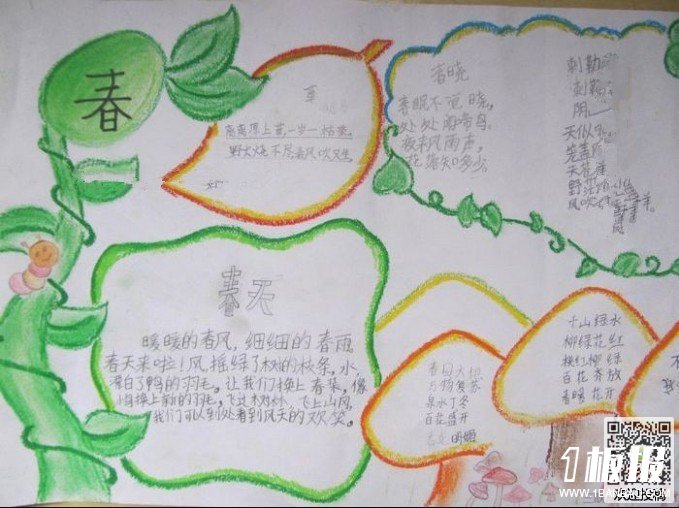 春
草
离离原上草一岁一枯荣,
野火烧不尽春风吹又生,
春晓
春眠不觉晓,
处处闻啼鸟。
夜来风雨声,
花落知多少。
刺勒
刺勒
阴
天似
笼盖
天苍
野
风吹
春天
暖暖的春风,细细的春雨
春天来啦!风,摇绿了树的枝条,水
漂白了鸭的羽毛。让我们换上春装,像
小鸟换上新的羽毛。飞过树
我们可以到处看到风天的欢笑。
春回大地
万物复苏
泉水丁冬
百花盛开
明媚
十山绿水
柳绿花红
桃红柳绿
百花齐放
春暖花开
1板报
WWW.1BANBAO.COM
欢迎投稿